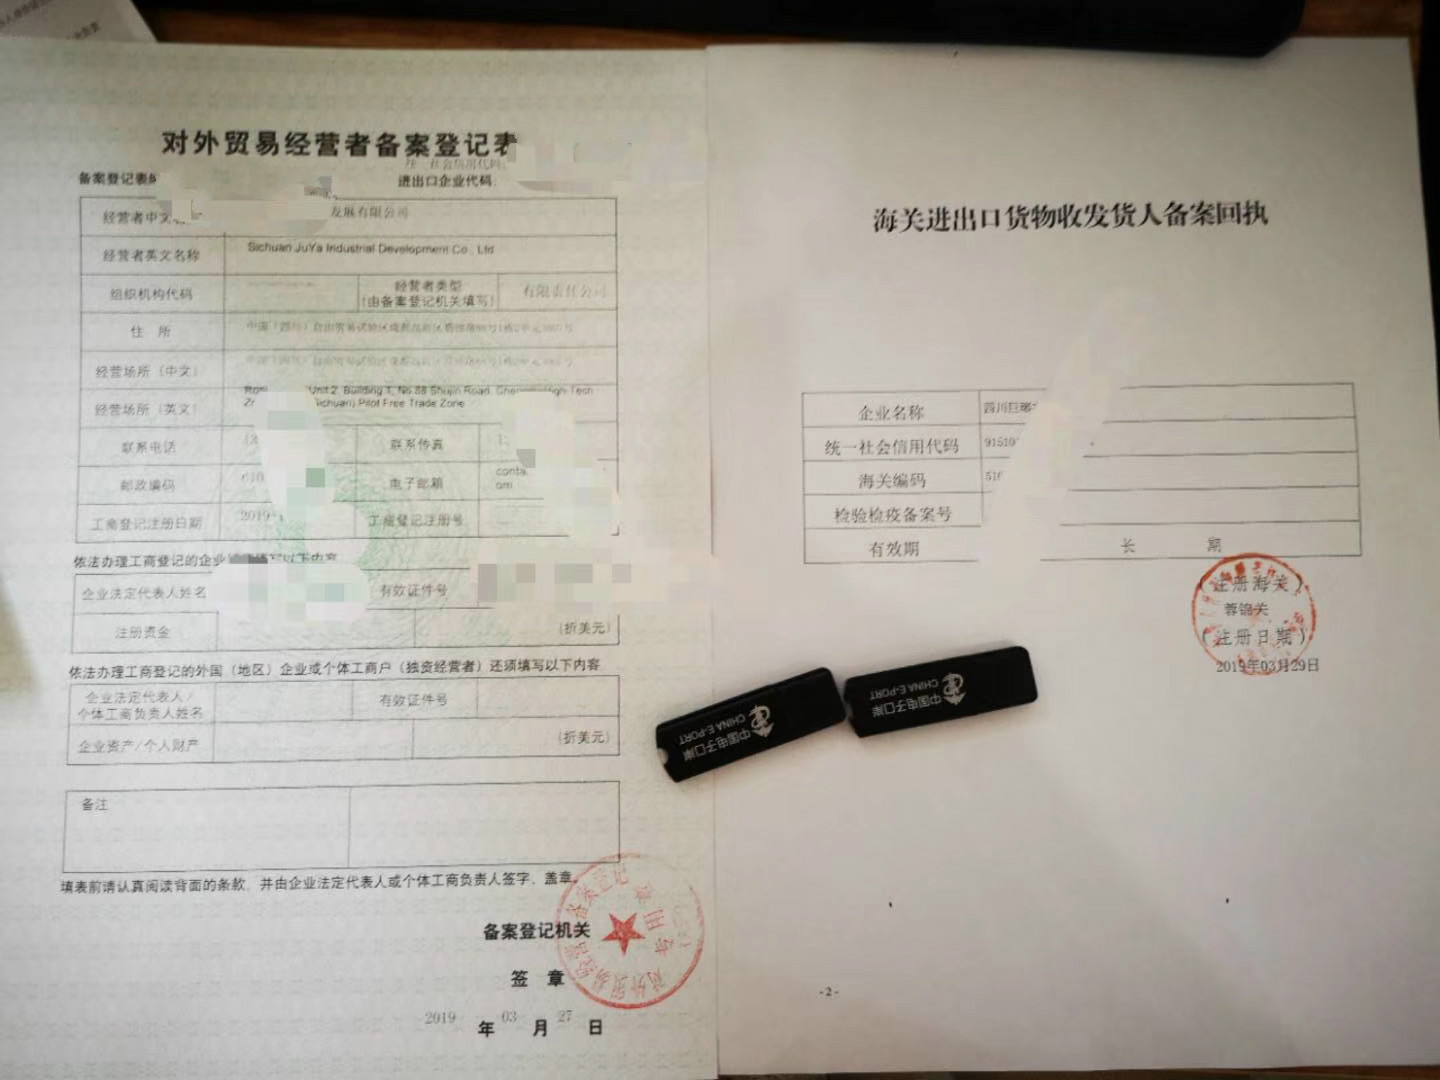 对外贸易经营者备案登记表
统一社会信用代码
备案登记表
进出口企业代码:
经营者中文
发展有限公司
经营者英文名称
Sichuan JuYa Industrial Development Co., Ltd
组织机构代码
经营者类型
(由备案登记机关填写)
有限责任公司
住 所
经营场所(中文)
经营场所(英文)
Unit 2, Building 1, No.88 Shujin Road, Tech
Sichuan) Pilot Free Trade Zone
联系电话
联系传真
邮政编码
610
电子邮箱
conta
om
工商登记注册日期
2019-
工商登记注册号
依法办理工商登记的企业 以下内容
企业法定代表人姓名
有效证件号
注册资金
(折美元)
依法办理工商登记的外国(地区)企业或个体工商户(独资经营者)还须填写以下内容
企业法定代表人/
个体工商负责人姓名
有效证件号
企业资产/个人财产
(折美元)
备注
填表前请认真阅读背面的条款,并由企业法定代表人或个体工商负责人签字、盖章。
备案登记机关
签 章
对外贸易经营者备案登记
专用章
2019 年 03 月 27 日
海关进出口货物收发货人备案回执
企业名称
四川巨
统一社会信用代码
91510
海关编码
516
检验检疫备案号
有效期
长 期
(注册海关)
蓉锦关
(注册日期)
2019年03月29日
中国电子口岸
CHINA E-PORT
中国电子口岸
CHINA E-PORT
-2-